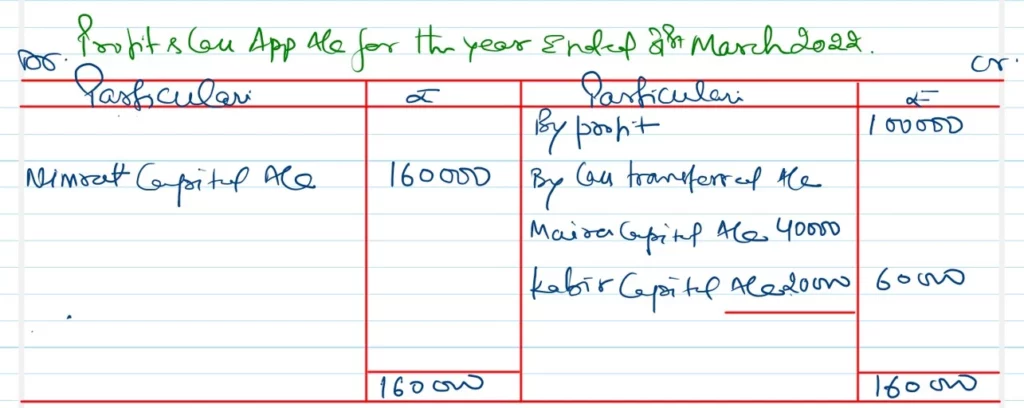 Profit & Loss App A/c for the year Ended 31st March 2022.
Dr. Cr.
Particulars ₹ Particulars ₹
By profit 100000
Nimrat Capital A/c 160000 By Loss transferred A/c
Maira Capital A/c 40000
Kabir Capital A/c 20000 60000
160000 160000